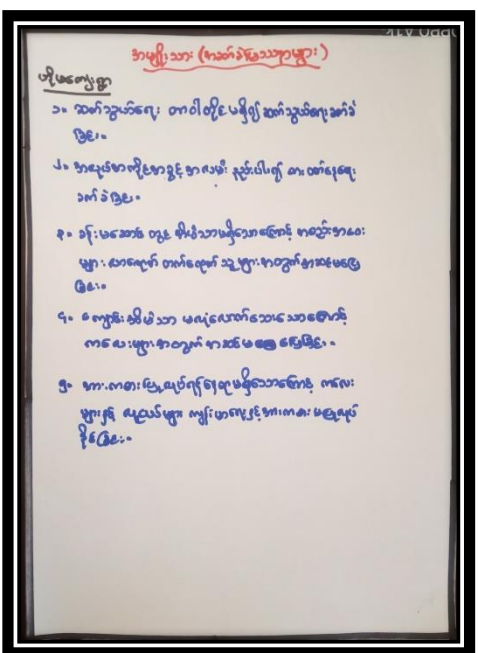 အမျိုးသား (အခက်ခဲပြဿနာများ)
ဟိုမကျေးရွာ
၁။ ဆက်သွယ်ရေး တာဝါတိုင်မရှိ၍ ဆက်သွယ်ရေးခက်ခဲ
ခြင်း။
၂။ အလုပ်အကိုင်အခွင့်အလမ်း နည်းပါး၍ စားဝတ်နေရေး
ခက်ခဲခြင်း။
၃။ ခန်းမဆောင် တွင် အိမ်သာမရှိသောကြောင့် အစည်းအဝေး
များ လာရောက် တက်ရောက် သူများအတွက် အဆင်မပြေ
ခြင်း။
၄။ ကျောင်းအိမ်သာ မလုံလောက်သေးသောကြောင့်
ကလေးများအတွက် အဆင်မပြေခြင်း။
၅။ အားကစားပြုလုပ်ရန်နေရာမရှိသောကြောင့် ကလေး
များနှင့် လူငယ်များ ကျန်းမာရေးနှင့်အားကစား မပြုလုပ်
နိုင်ခြင်း။